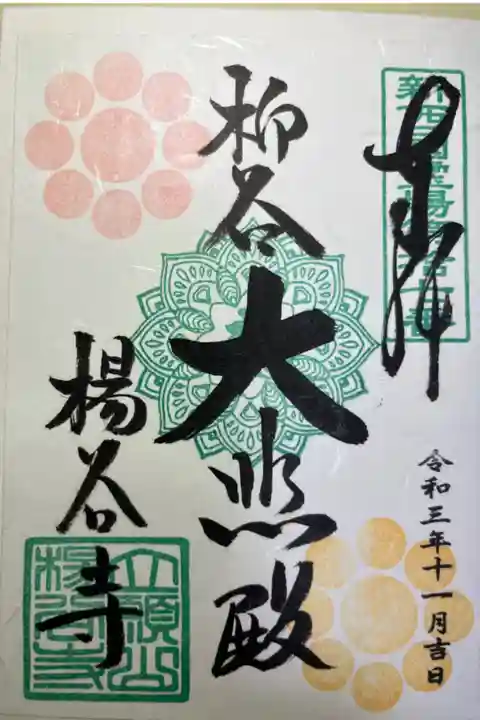 奉拝
新西国霊場第十七番
令和三年十一月吉日
柳谷
大悲殿
楊谷寺
立願山
楊谷寺